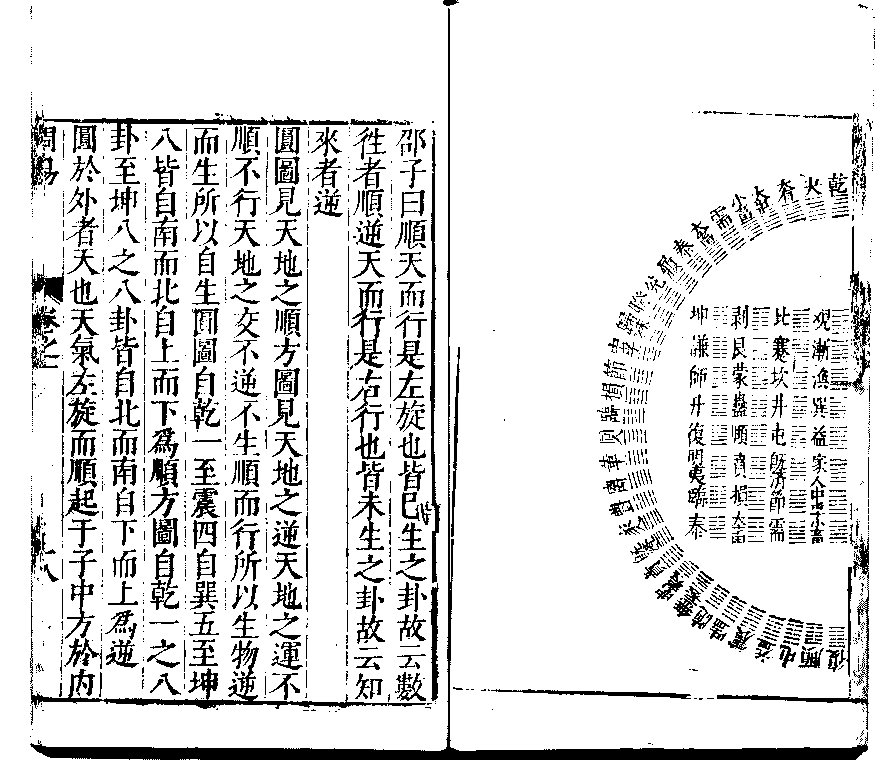 乾
夬
需
泰
履
兌
睽
節
損
臨
革
賁
隨
震
益
屯
頤
復
觀漸渙巽益家人中孚小畜
比蹇坎井屯既濟節需
剝艮蒙蠱頤賁損大畜
坤謙師升復明夷臨泰
邵子曰順天而行是左旋也皆已生之卦故云數
徃者順逆天而行是右行也皆未生之卦故云知
來者逆
圓圖見天地之順方圖見天地之逆天地之運不
順不行天地之交不逆不生順而行所以生物逆
而生所以自生圓圖自乾一至震四自巽五至坤
八皆自南而北自上而下爲順方圖自乾一之八
卦至坤八之八卦皆自北而南自下而上爲逆
圓於外者天也天氣左旋而順起于子中方於內
周易
卷之